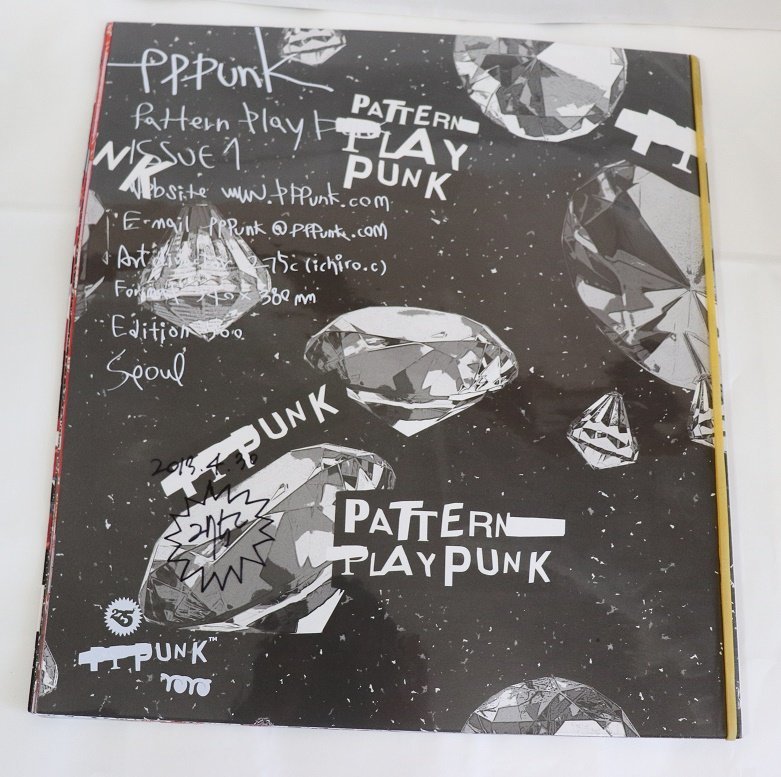 PPPunk
Pattern Play P
ISSUE 1
Website www.pppunk.com
E-mail pppunk@pppunk.com
(ichiro.c)
380 mm
Edition 500
Seoul
PATTERN
PLAY
PUNK
NK
PUNK
2013.4.30
PATTERN
PLAY PUNK
25
PUNK™